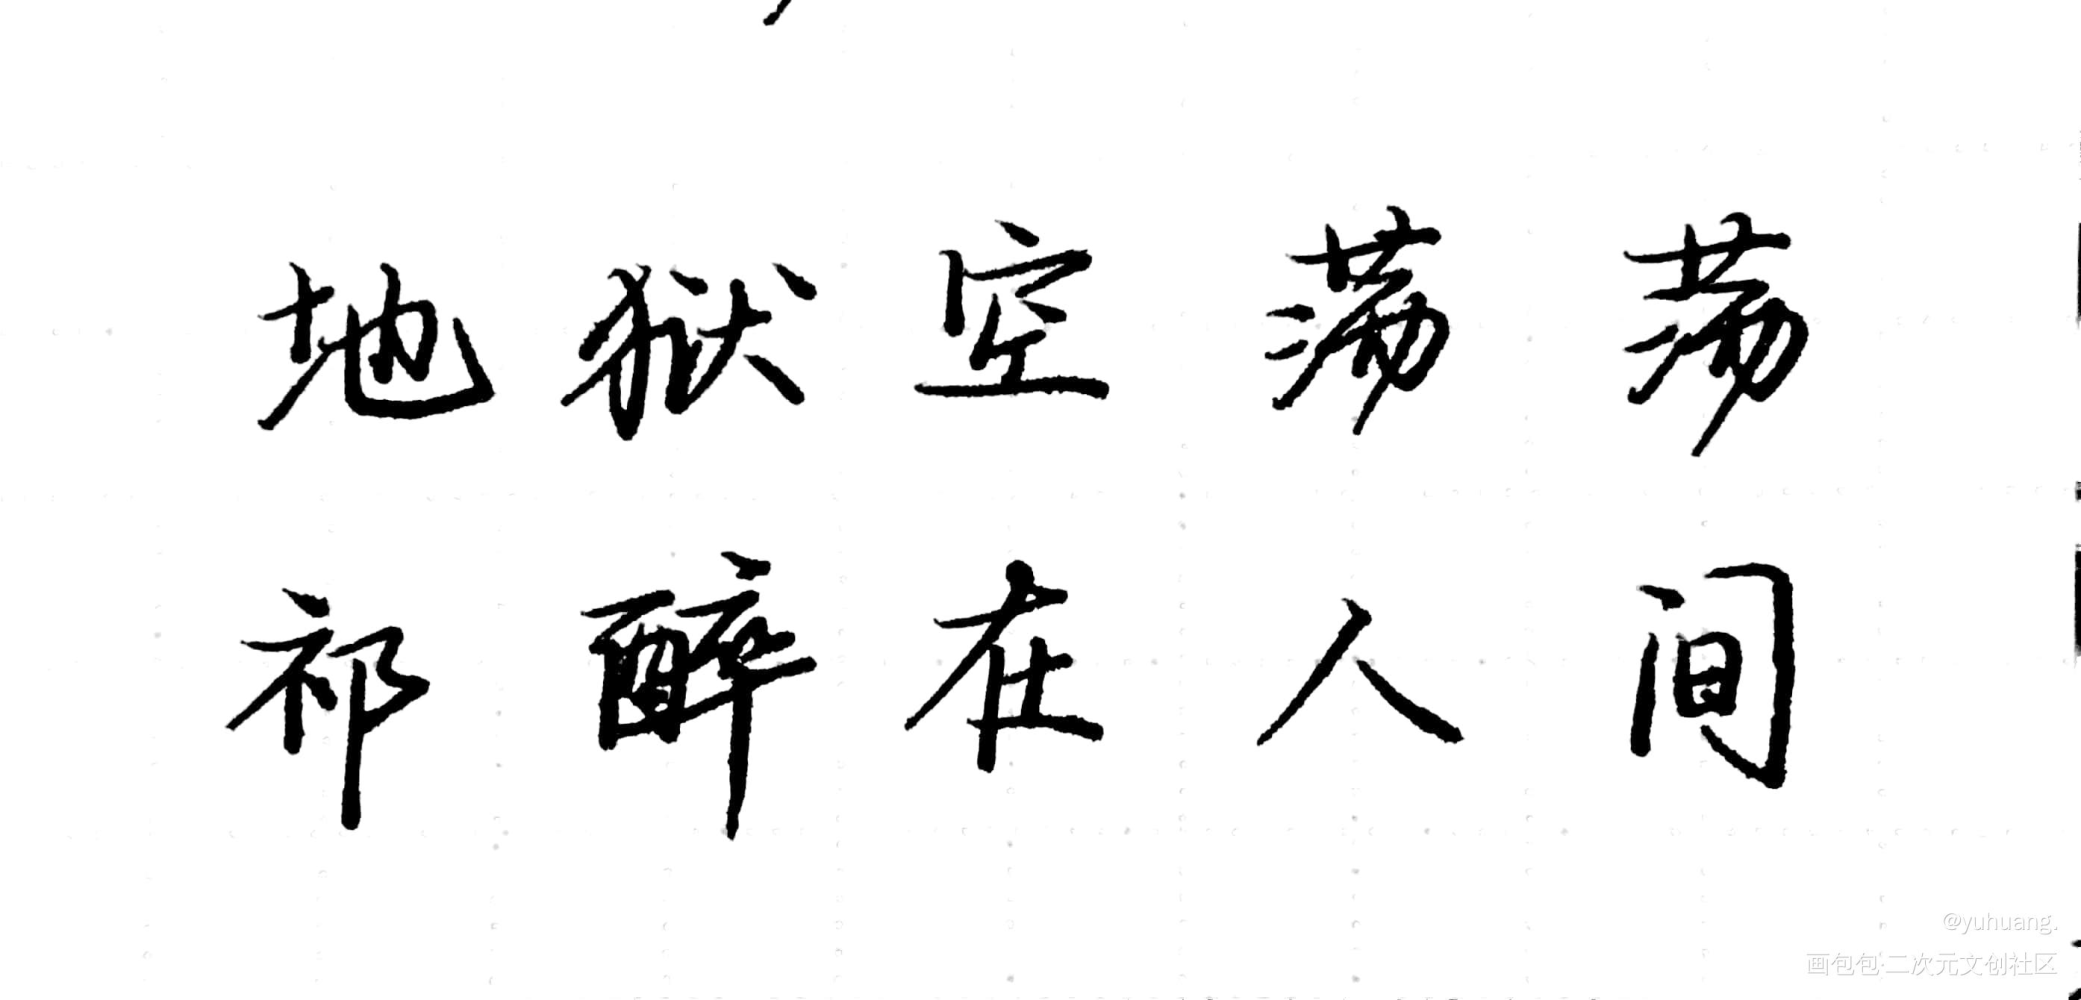 地狱空荡荡
祁醉在人间
@yuhuang.
画包包·二次元文创社区